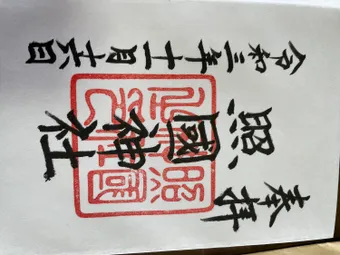 奉拝
照國神社
令和三年十一月十六日
照國神社之印